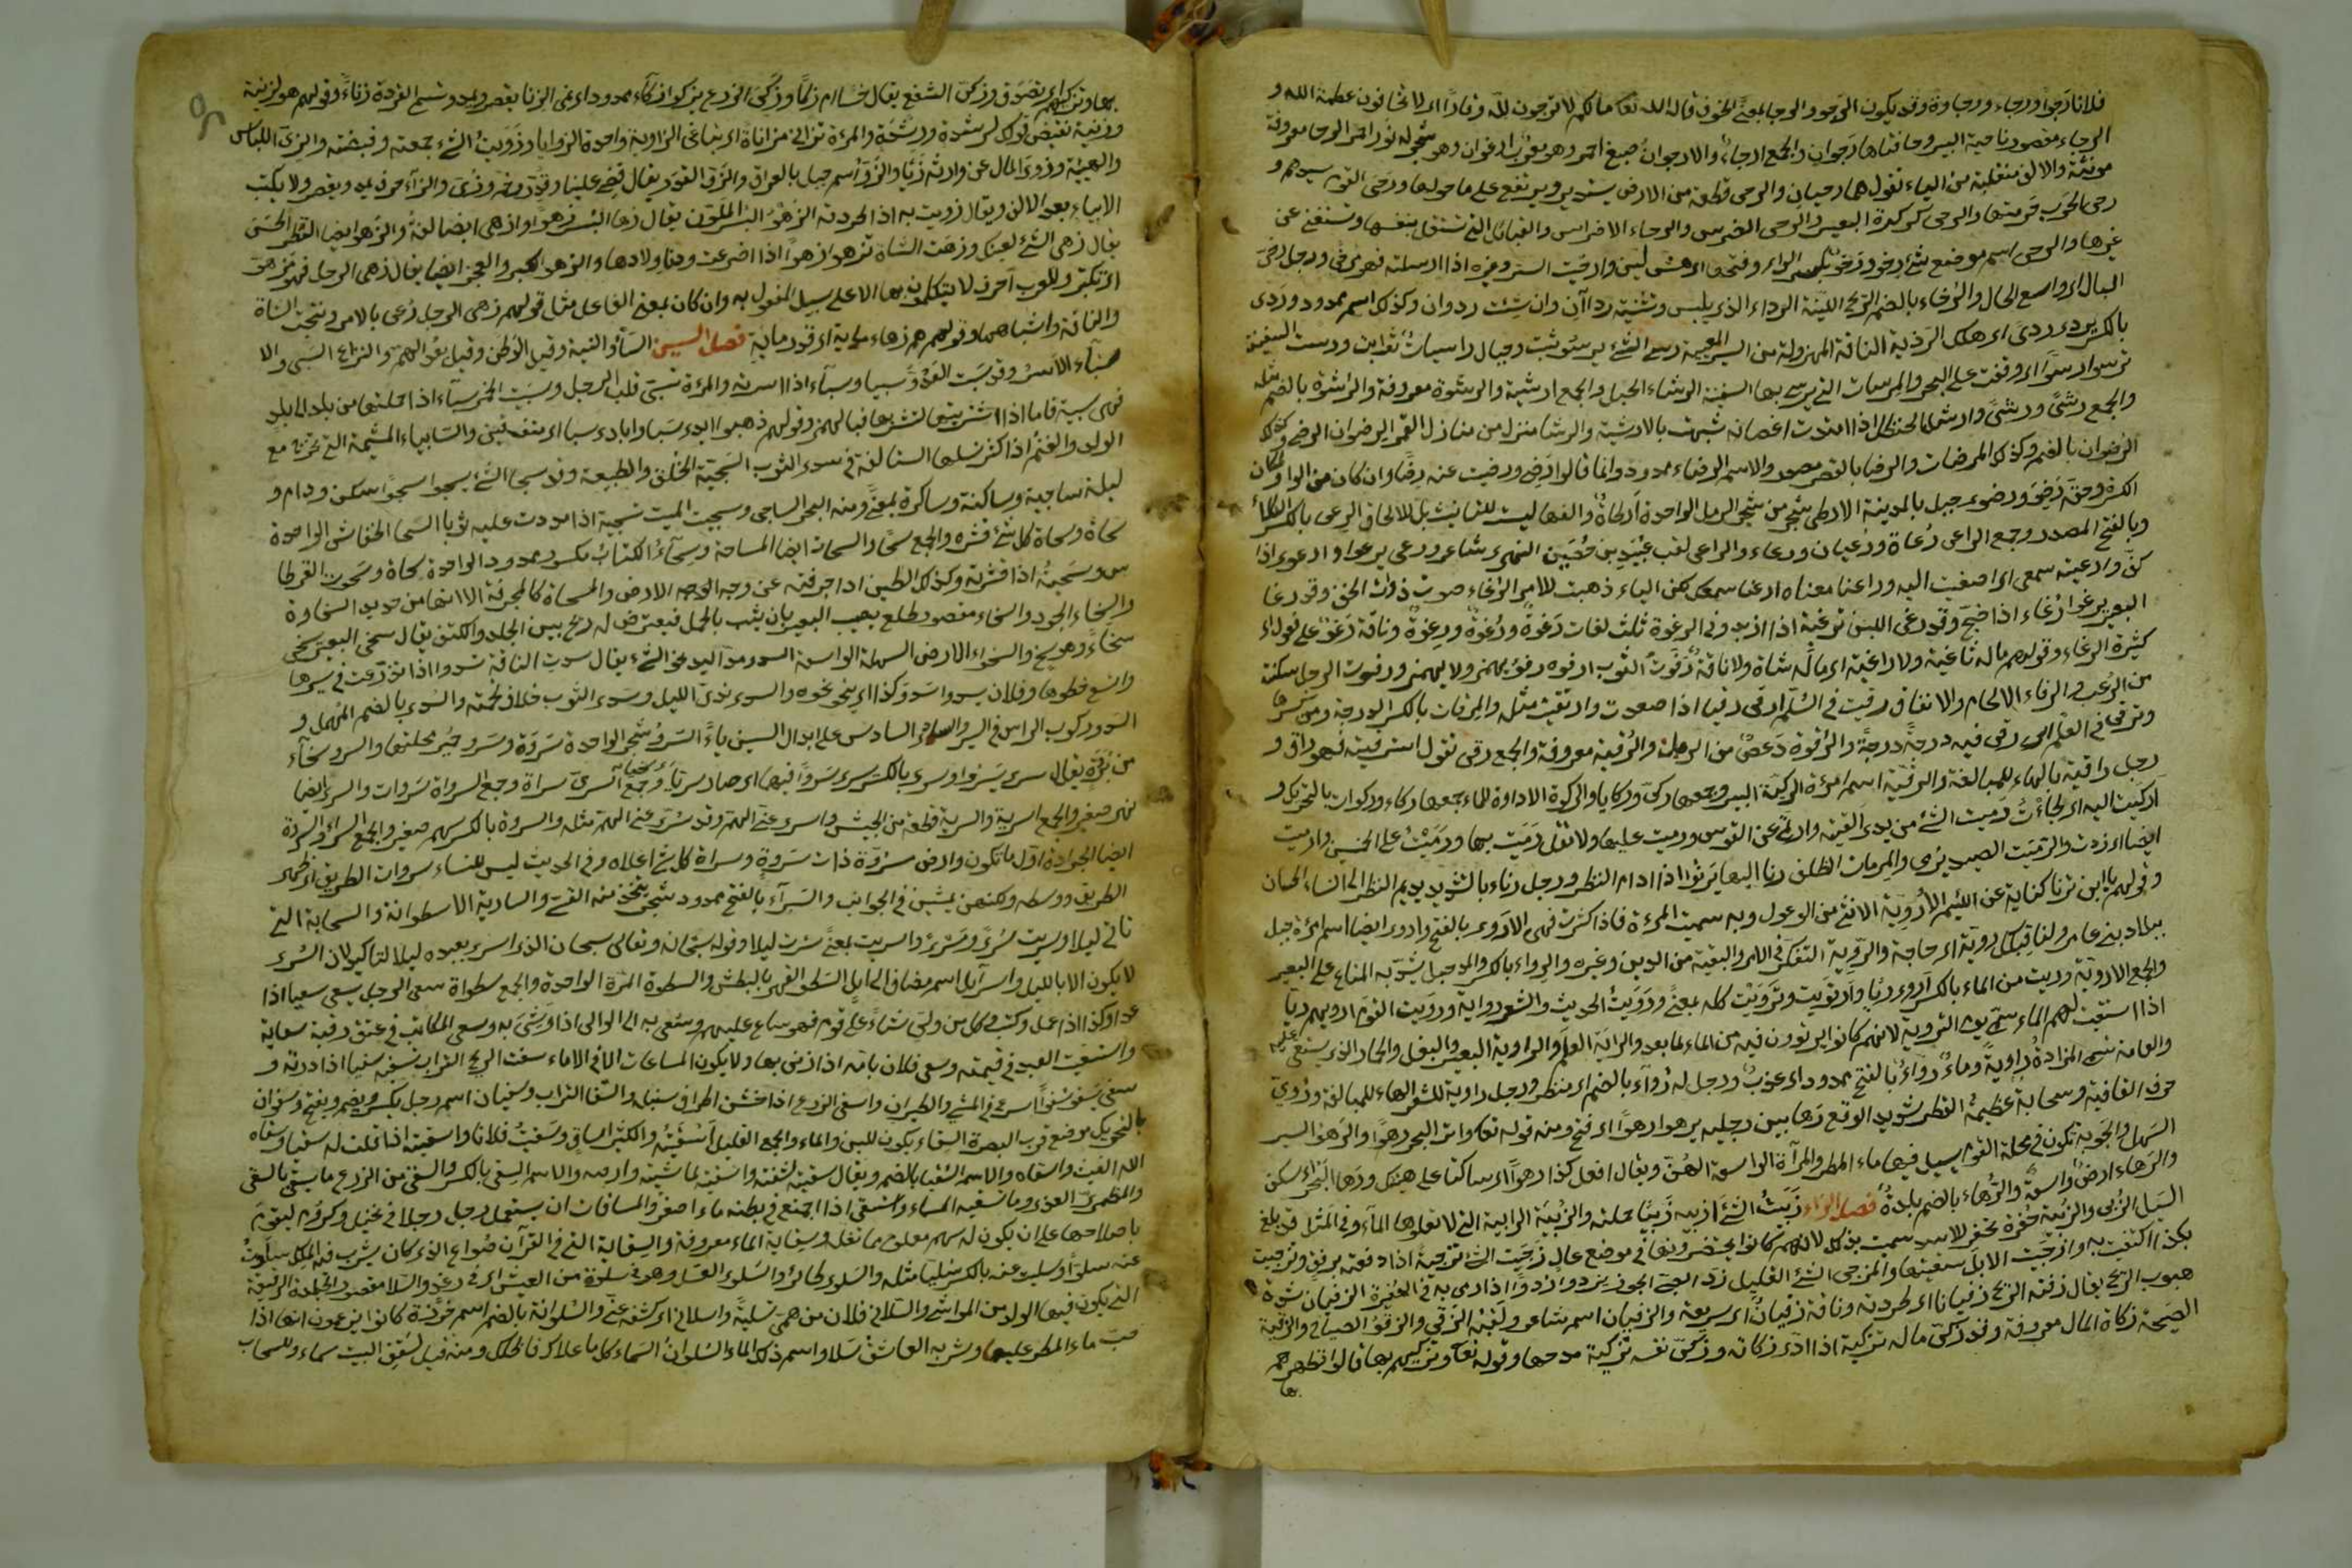 فلانا رَجوًا ورجاء ورجاوة وقد يكون الرجو والرجا بمعنى الخوف قال الله تعا مالكم لا ترجون لله وقارًا اى لا تخافون عظمة الله و
الرجاء مقصور ناحية البير وحافتاها رجوان والجمع ارجاء والارجوان صبغ احمر وهو معرّب ارغوان وهو شجر له نور احمر الرحا معروفة
مونثة والالف منقلبة من الياء تقول هما رحيان والرحى قطعة من الارض يستدير ويرتفع على ما حولها ورحى القوم سيدهم و
رحى الحرب حومتها والرحى كركرة البعير والرحى الضرس والارحاء الاضراس والقبائل التى تستقل بنفسها وتستغنى عن
غيرها والرحى اسم موضع شئ رخو بكسر الراء وفتحها اى هش لين وارخيت الستر وغيره اذا ارسلته ورجل رخىّ
البال اى واسع الحال والرُخاء بالضم الريح اللينة الرداء الذى يلبس وتثنيته رداآن وان شئت رداوان وكذلك اسم ممدود وردى
بالكسر يردى ردى اى هلك الرذية الناقة المهزولة من السير رسى الشئ يرسو ثبت وجبال راسيات ورست السفينة
ترسوا رسوًّا اى وقفت على البحر والمرساة التى يرسى بها السفينة الرشاء الحبل والجمع ارشية والرشوة معروفة والرُشوة بالضم مثله
والجمع رِشىً ورُشىً وارشى الحنظل اذا امتدت اغصانه شبهت بالارشية والرشا منزل من منازل القمر الرضوان الرضى وكذلك
الرُضوان بالضم وكذلك المرضاة والرضا بالقصر مصدر والاسم الرضاء ممدود وانما قالوا رضى ورضيت عنه رضًا وان كان من الواو لمكان
الكسرة ورَضوى جبل بالمدينة الارطى شجر من شجر الرمل الواحدة ارطاة والفها ليست للتانيث بل للالحاق الرعى بالكسر الكلأ
وبالفتح المصدر وجمع الراعى رُعاة ورُعيان ورعاء والراعى لقب عبيد بن حُصَين النميرى شاعر ورعى يرعوا وارعوى اذا
كفّ وارعيته سمعى اى اصغيت اليه وراعنا معناه ارعنا سمعك الياء ذهبت للامر الرُغاء صوت ذوات الخف وقد رغا
البعير يرغوا رُغاء اذا ضجّ وقد رغّى اللبن ترغية اذا ازبد وفى الرغوة ثلث لغات رَغوة ورُغوة ورِغوة وناقة رَغوّ على فعول اى
كثيرة الرغاء وقولهم ماله ثاغية ولا راغية اى ماله شاة ولا ناقة رفوت الثوب ارفوه رفوًا يهمز ولا يهمز ورفوت الرجل سكنته
من الرُعب والرفاء الالتحام والاتفاق رقيت فى السُلّم ارقى رقيا اذا صعدت وارتقيت مثله والمِرقاة بالكسر الدرجة ومن
وترقى فى العلم اى رقى فيه درجة درجة والرَقوة دِعصٌ من الرمل والرُقية معروفة والجمع رقى تقول استرقيته فهو راق و
رجل راقية بالهاء للمبالغة والرقيّة اسم امرءة الركيّة البير وجمعها ركىّ وركايا والركوة الاداوة للماء جمعها ركاء وركوات بالتحريك و
اركيت اليه اى لجات رميت الشئ من يدى القيته وارتمى عن القوس ورميت عليها ولا تقل رميت بها ورميت على الخمسين وارميت
ايضا اى زدت والرميّة الصيد يُرمى والمِرماة الظلف رنا اليها يَرنوا اذا ادام النظر ورجل رناء بالتشديد يديم النظر الى النساء الحسان
وقولهم يا ابن تُرنا كناية عن اللئيم الاُروية الانثى من الوعول وبه سميت المرءة فاذا كثرت فهى الاَروى بالفتح واروى ايضا اسم امرءة جبل
ببلاد بنى عامر ولنا قبلك روية اى حاجة والروية التفكر فى الامر والبقية من الدين وغيره والرِواء بالكسر والمد حبل يشد به المتاع على البعير
والجمع الاروية ورويت من الماء بالكسر اروى ريًّا وارتويت وتروّيت كله بمعنى ورويت الحديث والشعر رواية ورويت القوم ارويهم ريًا
اذا استقيت لهم الماء سمّى يوم التروية لانهم كانوا يرتوون فيه من الماء لما بعد والراية العلم والراوية البعير والبغل والحمار الذى يستقى عليه
والعامة تسمى المزادة راوية وماء رَواء بالفتح ممدود اى عذب ورجل له رُواء بالضم اى منظر ورجل راوية للشعر الهاء للمبالغة ورَوىّ
حرف القافية وسحابة عظيمة القطر شديد الوقع رَها بين رجليه يرهوا رهوًا اى فتح ومنه قوله تعا واترك البحر رهوًا والرهو السير
السهل والجوبة تكون فى محلة القوم يسيل فيها ماء المطر والمرأة الواسعة الهن ويقال افعل كذا رهوًا اى ساكنا على هينتك ورها البحر اى سكن
والرهاء ارض واسعة والرُهاء بالضم بلدة فصل الزاء زبيت الشئ ازبيه زَبيًا حملته والزبية الرابية التى لا يعلوها الماء وفى المثل قد بلغ
السيل الزُبى والزُبية حفرة تحفر للاسد سميت بذلك لانهم كانوا يحفرونها فى موضع عال زجّيت الشئ تزجية اذا دفعته برفق وتزجيت
بكذا اكتفيت به وازجيت الابل سقتها والمزجى الشئ القليل زدا الصبى الجوز يزدوا زدوًا اذا رمى به فى الحفيرة الزفيان شدة
هبوب الريح يقال زفته الريح زفيانا اى طردته وناقة زفيان اى سريعة والزفيان اسم شاعر ولقبه الزقى والزقو الصياح والزقية
الصيحة زكاة المال معروفة وقد زكّى ماله تزكية اذا ادّى زكاته وزكّى نفسه تزكية مدحها وقوله تعا وتزكيهم بها قالوا تطهرهم
بها
بها وتزكيهم اى تصدّق وزكى الشفع يقال خسا ام زكا وزكى الزرع يزكوا زكاء ممدود اى نمى الزنا يقصر ويمد وتسمى القردة زنّاءً وقولهم هو لزنية
وزِنية نقيض قولك لرشدة ورشدة والمرءة تزانى مزاناة اى تباغى الزاوية واحدة الزوايا وزويت الشئ جمعته وقبضته والزىّ اللباس
والهيئة وزوى المال عن وارثه زيًّا والزَوّ اسم جبل بالعراق والزوّ القدر يقال قضى علينا وقدّر وزى والزاء حرف يمد ويقصر ولا يكتب
الا بياء بعد الالف ويقال زويت به اذا طردته الزَهو البُسر الملوّن يقال زها البُسر زهوًا وازهى ايضا لغة والزهو ايضا المنظر الحسن
يقال زهى الشئ لعينك وزهت الشاة تزهوا زهوًا اذا اضرعت ودنا ولادها والزهو الكبر والعجب ايضا يقال زهى الرجل فهو مزهوّ
اى تكبّر وللعرب احرف لا يتكلمون بها الا على سبيل المفعول به وان كان بمعنى الفاعل مثل قولهم زهى الرجل وعنى بالامر ونتجت الشاة
والناقة واشباهها وقولهم هم زهاء ماية اى قدر ماية فصل السين السأو النية وقيل الوطن وقيل بُعد الهمّ والنزاع السَبى والا
ستباء الاسر وقد سبيت العدوّ سبيا وسباء اذا اسرته والمرءة تسبى قلب الرجل وسبيت الخمر سباء اذا حملتها من بلد الى بلد
فهى سبية فاما اذا اشتريتها لتشربها فبالهمز وقولهم ذهبوا ايدى سبا وايادى سبا اى متفرقين والسابياء المشيمة التى تخرج مع
الولد والغنم اذا كثر نسلها الستا لغة فى سدى الثوب السجية الخلق والطبيعة وقد سجا الشئ يسجوا سجوًا سكن ودام و
ليلة ساجية وساكنة وساكرة بمعنى ومنه البحر الساجى وسجيت الميت تسجية اذا مددت عليه ثوبا السحا الخفاش الواحدة
سحاة وسحاة كل شئ قشره والجمع سحًا والسحاة ايضا الساحة وسِحاء الكتاب مكسور ممدود الواحدة سحاة وسحوت القرطاس
وسحيته اذا قشرته وكذلك الطين اذا جرفته عن وجه الارض والمسحاة كالمجرفة الا انها من حديد السخاوة
والسخاء الجود والسخاء مقصور ظلع يصيب البعير بان يثب بالحمل فيعترض له ريح بين الجلد والكتف يقال سخى البعير يسخى
سخًا فهو سخٍ والسخواء الارض السهلة الواسعة السدو مدّ اليد نحو الشئ يقال سدت الناقة تسدوا اذا تذرعت فى سيرها
واتسع خطوها وفلان يسدوا سدو كذا اى ينحو نحوه والسدى ندى الليل وسدى الثوب خلاف لحمته والسُدى بالضم المهمل و
السدو ركوب الراس فى السير والسادى السادس على ابدال السين ياءً السرو شجر الواحدة سروة وسرو حمير محلتها والسرو سخاء
من مروة يقال سرى يسروا وسرى بالكسر يسرى سروًا فيهما اى صار سريًا وجمع السرىّ سراة وجمع السراة سروات والسرى ايضا
نهر صغير والجمع اسرية والسرية قطعة من الجيش وانسرى عنى الهم وقد سُرّى عنى الهم مثله والسروة بالكسر سهم صغير والجمع السِراء والسِروة
ايضا الجرادة اول ما تكون وارض مسروّة ذات سروة وسراة كل شئ اعلاه وفى الحديث ليس للنساء سروات الطريق اى ظهر
الطريق ووسطه ولكنهن يمشين فى الجوانب والسَراء بالفتح ممدود شجر يتخذ منه القسىّ والسارية الاسطوانة والسحابة التى
تاتى ليلا وسريت سُرىً ومسرىً واسريت بمعنى سرت ليلا وقوله سبحانه وتعالى سبحان الذى اسرى بعبده ليلا للتاكيد لان السُرى
لا يكون الا بالليل واسرآئل اسم مضاف الى ايل السطو القهر بالبطش والسطوة المرّة الواحدة والجمع سطوات سعى الرجل يسعى سعيا اذا
عدا وكذا اذا عمل وكسب وكل من ولى شياءً على قوم فهو ساع عليهم وسعى به الى الوالى اذا وشى به وسعى المكاتب فى عتق رقبته سعاية
واستسعيت العبد فى قيمته وسعى فلان بامة اذا زنى بها ولا يكون المساعاة الا فى الاماء سفت الريح التراب تسفيه سفيا اذا ذرته و
سفى يسفو سُفوًّا اسرع فى المشى والطيران واسفى الزرع اذا خشن اطراف سنبله والسفا التراب وسفيان اسم رجل يكسر ويضم ويفتح وسفوان
بالتحريك موضع قرب البصرة السقاء يكون للبن والماء والجمع القليل اسقية والكثير اساقٍ وسقيت فلانا واسقيته اذا قلت له سقيا وسقاه
الله الغيث واسقاه والاسم السُقيا بالضم ويقال سقيته لشفته واسقيته لماشيته وارضه والاسم السِقى بالكسر والسقى من الزرع ما يسقى بالسقى
والمظمئ العذى وما تسقيه السماء واستسقى اذا اجتمع فى بطنه ماء اصفر والمساقاة ان يستعمل رجل رجلا فى نخيل وكروم ليقوم
باصلاحها على ان يكون له سهم معلوم مما تغله وسقاية الماء معروفة والسقاية التى فى القرآن صُواع الذى كان يشرب فيه الملك سلوت
عنه سلوًّا وسليت عنه بالكسر سُليًا مثله والسلوى طائر والسلوى العسل وهو فى سلوة من العيش اى فى رغد والسلا مقصور الجلدة الرقيقة
التى يكون فيها الولد من المواشى والسلانى فلان من همى تسلية واسلانى اى كشفه عنى والسُلوانة بالضم اسم خرزة كانوا يزعمون انها اذا
صبّ ماء المطر عليها وشربه العاشق سلا واسم ذلك الماء السُلوان السماء كل ما علاك فاظلك ومنه قيل لسقف البيت سماء وللسحاب